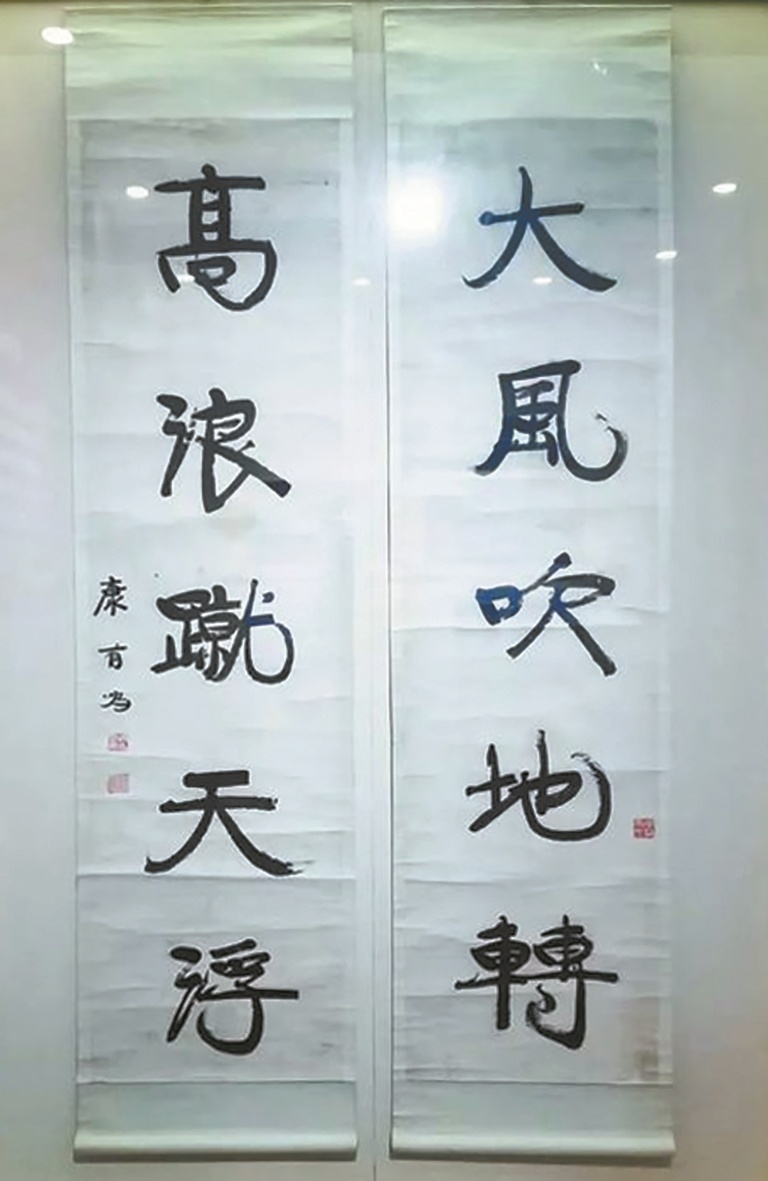 大風吹地轉
高浪蹴天浮
康有為